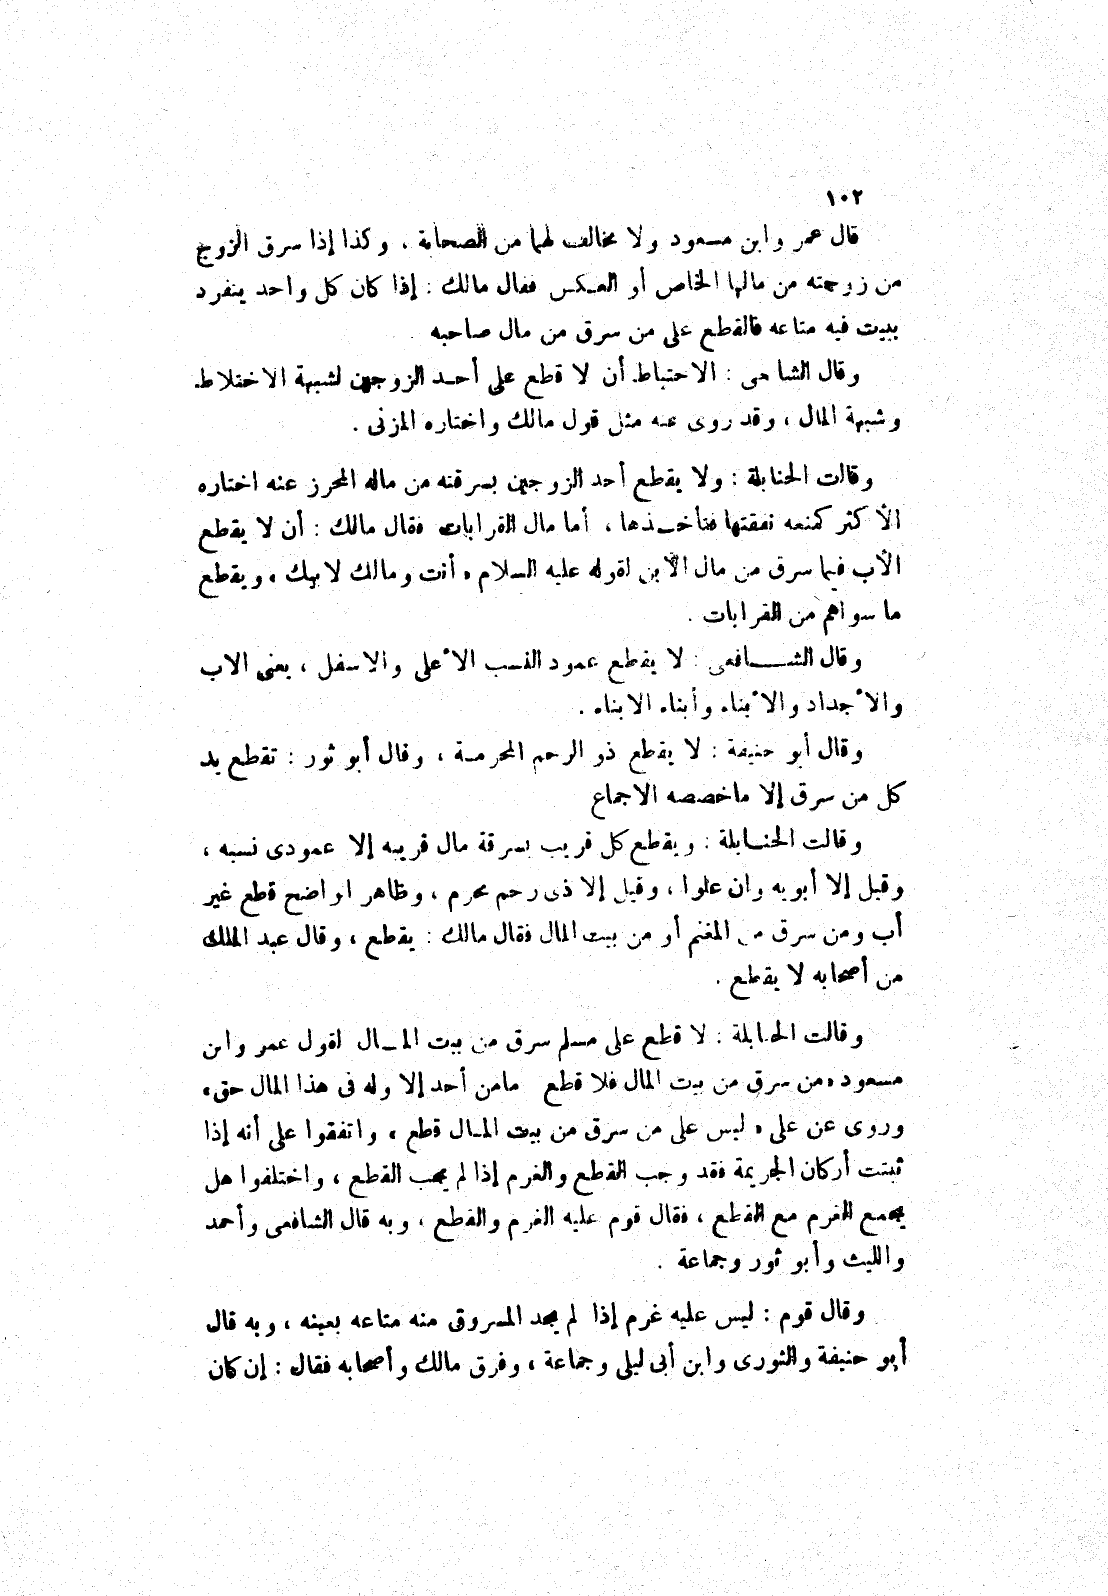 ١٠٢
قال عمر وابن مسعود ولا مخالف لهما من الصحابة . وكذا إذا سرق الزوج
من زوجته من مالها الخاص أو العكس فقال مالك : إذا كان كل واحد ينفرد
ببيت فيه متاعه فالقطع على من سرق من مال صاحبه
وقال الشافعى : الاحتياط أن لا قطع على أحد الزوجين لشبهة الاختلاط
وشبهة المال ، وقد روى عنه مثل قول مالك واختاره المزنى .
وقالت الحنابلة : ولا يقطع أحد الزوجين بسرقته من ماله المحرز عنه اختاره
الأكثر كمنعه نفقتها فتأخذها ، أما مال القرابات فقال مالك : أن لا يقطع
الأب فيما سرق من مال الأبن لقوله عليه السلام « أنت ومالك لابيك » ويقطع
ما سواهم من القرابات .
وقال الشافعى : لا يقطع عمود النسب الأعلى والاسفل ، يعنى الاب
والأجداد والأبناء وأبناء الابناء .
وقال أبو حنيفة : لا يقطع ذو الرحم المحرمة ، وقال أبو ثور : تقطع يد
كل من سرق إلا ماخصصه الاجماع
وقالت الحنابلة : ويقطع كل قريب بسرقة مال قريبه إلا عمودى نسبه ،
وقيل إلا أبويه وان علوا ، وقيل إلا ذى رحم محرم ، وظاهر الواضح قطع غير
أب ومن سرق من المغنم أو من بيت المال فقال مالك : يقطع ، وقال عبد الملك
من أصحابه لا يقطع .
وقالت الحنابلة : لا قطع على مسلم سرق من بيت المال لقول عمر وابن
مسعود « من سرق من بيت المال فلا قطع مامن أحد إلا وله فى هذا المال حق »
وروى عن على « ليس على من سرق من بيت المال قطع » واتفقوا على أنه إذا
ثبتت أركان الجريمة فقد وجب القطع والغرم إذا لم يجب القطع ، واختلفوا هل
يجمع الغرم مع القطع ، فقال قوم عليه الغرم والقطع ، وبه قال الشافعى وأحمد
والليث وأبو ثور وجماعة .
وقال قوم : ليس عليه غرم إذا لم يجد المسروق منه متاعه بعينه ، وبه قال
أبو حنيفة والثورى وابن أبى ليلى وجماعة ، وفرق مالك وأصحابه فقال : إن كان